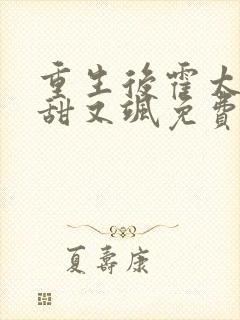 重生後霍太
甜又颯免費
夏壽康